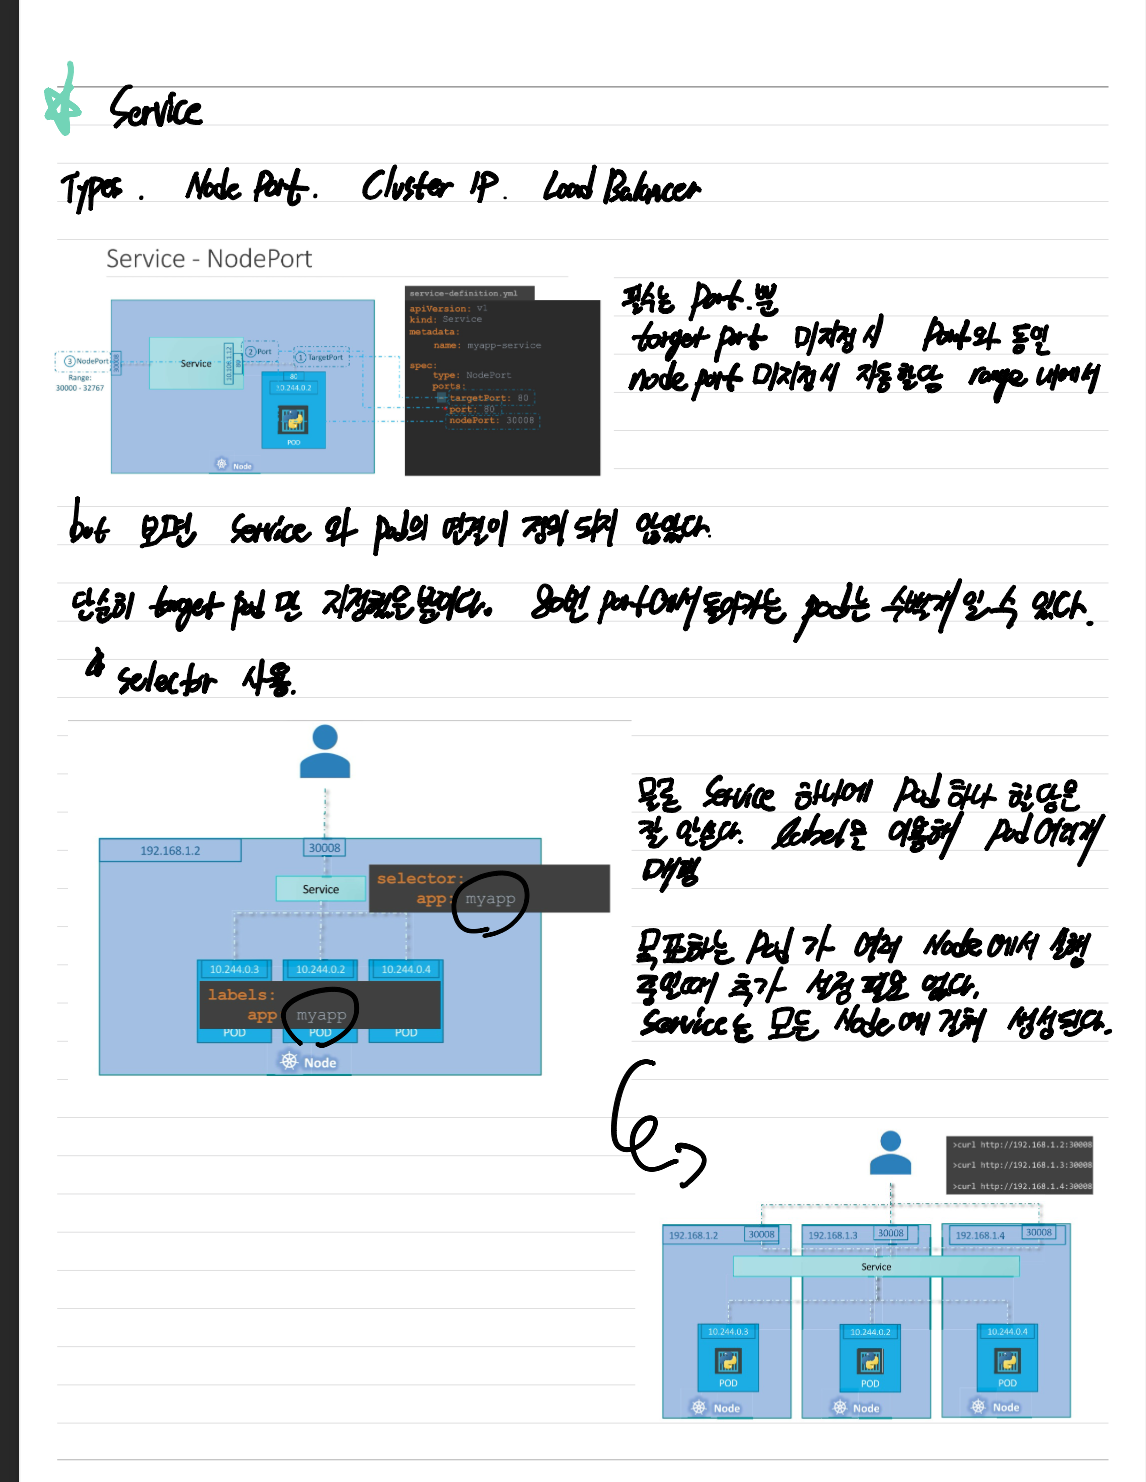 Service
Types. Node Port. Cluster IP. Load Balancer
Service - NodePort
필수는 port.뿐
target port 미지정시 Port와 동일
node port 미지정시 자동할당 range 내에서
3 NodePort
Range:
30000 - 32767
30008
Service
10.106.1.12
80
2 Port
1 TargetPort
80
10.244.0.2
POD
Node
service-definition.yml
apiVersion: v1
kind: Service
metadata:
name: myapp-service
spec:
type: NodePort
ports:
targetPort: 80
port: 80
nodePort: 30008
but 보면 Service 와 pod의 연결이 정의 되지 않았다.
단순히 target pod 만 지정했을뿐이다. 80번 port에서 돌아가는 pod는 수백개 일 수 있다.
selector 사용.
192.168.1.2
30008
Service
selector:
app: myapp
10.244.0.3 10.244.0.2 10.244.0.4
labels:
app myapp
POD POD POD
Node
물론 Service 하나에 Pod 하나 할당은
잘 안쓴다. label을 이용해 Pod 여러개
매핑
목표하는 Pod 가 여러 Node 에서 실행
중일때 추가 설정 필요 없다.
Service는 모든 Node 에 걸쳐 생성된다.
>curl http://192.168.1.2:30008
>curl http://192.168.1.3:30008
>curl http://192.168.1.4:30008
192.168.1.2 30008 192.168.1.3 30008 192.168.1.4 30008
Service
10.244.0.3 10.244.0.2 10.244.0.4
POD POD POD
Node Node Node